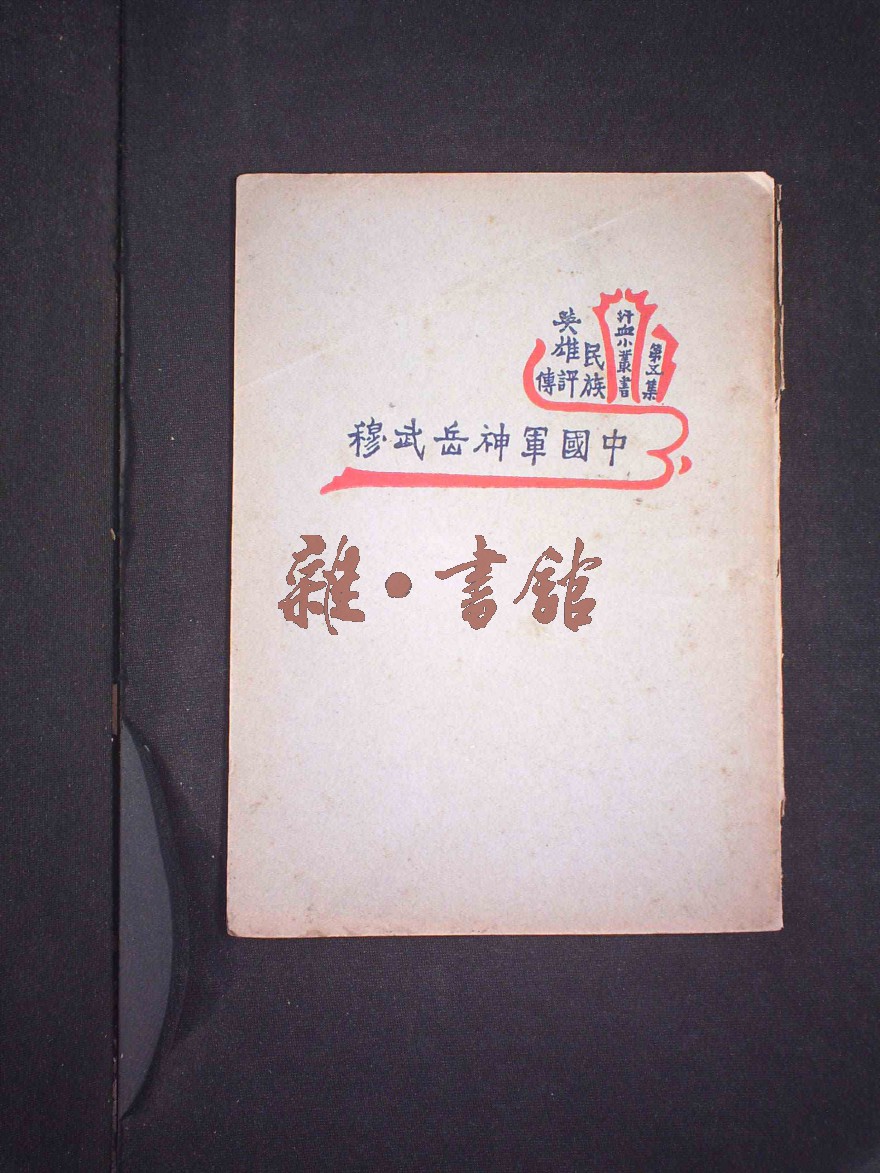 第五集
汗血小叢書
民族
英雄評傳
中國軍神岳武穆
雜·書館